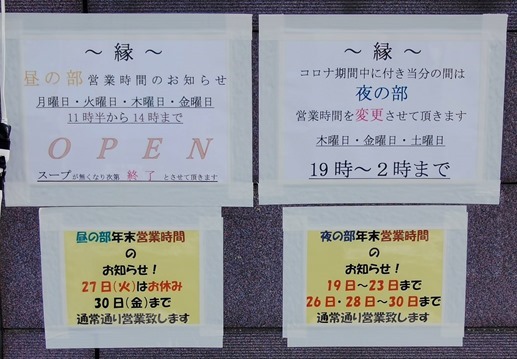 ～ 縁 ～
昼の部営業時間のお知らせ
月曜日・火曜日・木曜日・金曜日
11時半から14時まで
OPEN
スープが無くなり次第 終了 とさせて頂きます
～ 縁 ～
コロナ期間中に付き当分の間は
夜の部
営業時間を変更させて頂きます
木曜日・金曜日・土曜日
19時～2時まで
昼の部年末営業時間
の
お知らせ！
27日(火)はお休み
30日(金)まで
通常通り営業致します
夜の部年末営業時間
の
お知らせ！
19日～23日まで
26日・28日～30日まで
通常通り営業致します